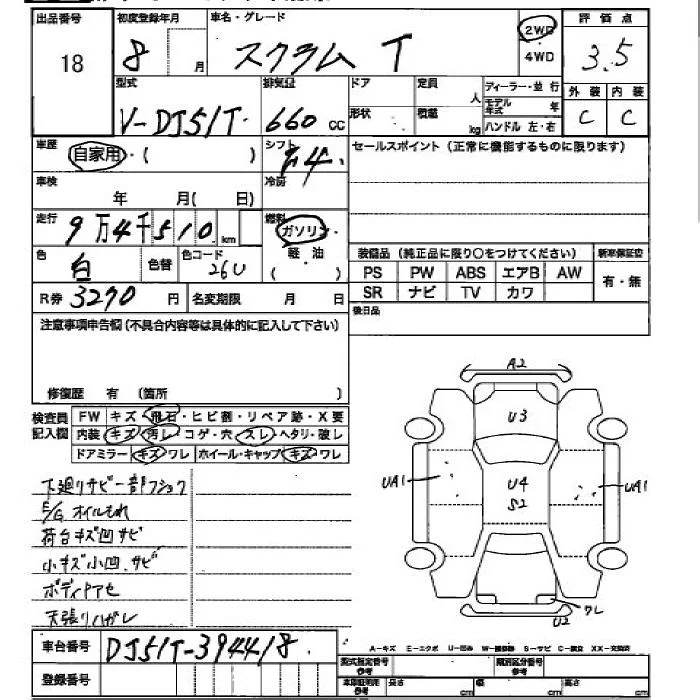 出品番号 初度登録年月 車名・グレード 2WD 4WD 評価点
18 8 月 スクラム T 3.5
型式 排気量 ドア 定員 人 ディーラー・並行 外装 内装
V-DJ51T 660 CC 形状 積載 kg モデル年式 年 C C
ハンドル 左・右
車歴 自家用・( ) シフト F4 セールスポイント(正常に機能するものに限ります)
車検 年 月( 日) 冷房
走行 9万4千510 km 燃料 ガソリン・軽・油 ( )
色 白 色替 色コード 26U
装備品(純正品に限り○をつけてください) 新車保証書
PS PW ABS エアB AW 有・無
SR ナビ TV カワ
R券 3270 円 名変期限 月 日 後日品
注意事項申告欄(不具合内容等は具体的に記入して下さい)
修復歴 有 (箇所 )
検査員記入欄 FW キズ・飛石・ヒビ割・リペア跡・X要
内装 キズ・汚レ・コゲ・穴・スレ・ヘタリ・破レ
ドアミラー キズ・ワレ ホイール・キャップ キズ・ワレ
下廻りサビ一部フショク
E/Gオイルもれ
荷台キズ凹サビ
小キズ小凹.サビ
ボディアセ
天張りハガレ
A2
U3
UA1 U4 UA1
S2
ワレ
U2
車台番号 DJ51T-394418
登録番号
A-キズ E-エクボ U-凹み S-サビ
型式指定番号 類別区分番号
長さ cm 幅 cm 高さ cm